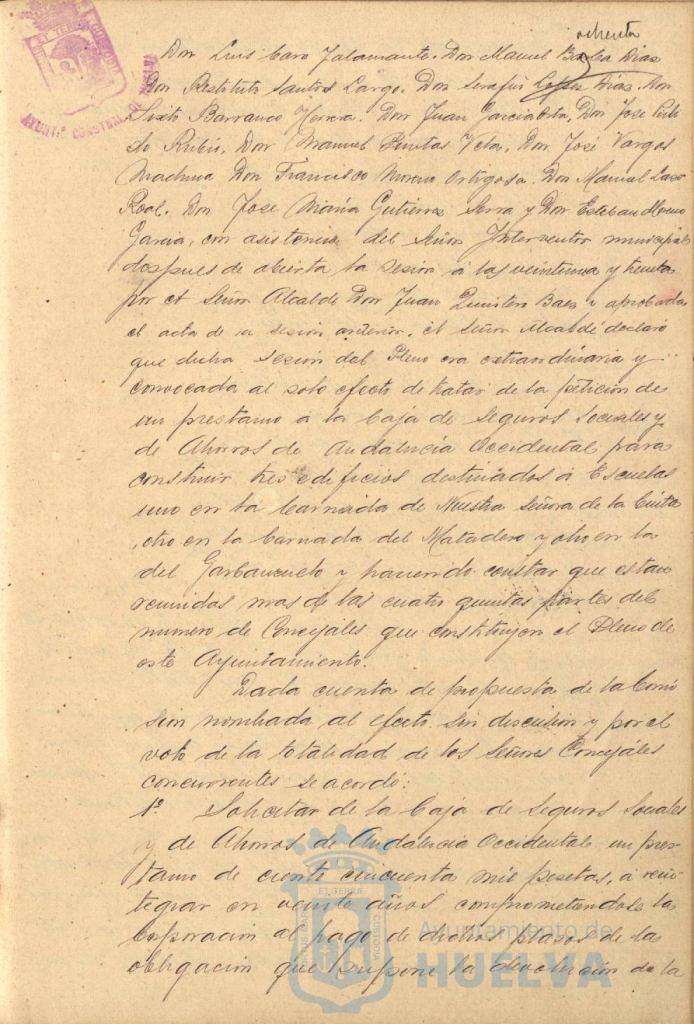 ochenta
Don Luis Caro Talamante. Don Manuel Barba Dias
Don Restituto Santos Largo. Don Serafin Lopez Dias. Don
Sixto Barranco Herrera. Don Juan Garcia Orta, Don Jose
Rubio, Don Manuel Puntas Vela, Don José Vargas
Machuca Don Francisco Moreno Ortigosa. Don Manuel Lazo
Real. Don Jose Maria Gutierrez Serra y Don Esteban Moreno
Garcia, con asistencia del Señor Interventor municipal
despues de abierta la sesion á las veintiuna y treinta
por el Señor Alcalde Don Juan Quintero Baez y aprobada
el acta de la sesion anterior, el señor Alcalde declaró
que dicha sesion del Pleno era extraordinaria y
convocada al solo efecto de tratar de la peticion de
un prestamo á la Caja de Seguros Sociales y
de Ahorros de Andalucia Occidental para
construir tres edificios destinados á Escuelas
uno en la barriada de Nuestra Señora de la Cinta
, otro en la barriada del Matadero y otro en la
del Garbanzuelo y haciendo constar que estan
reunidos mas de las cuatro quintas partes del
numero de Concejales que constituyen el Pleno de
este Ayuntamiento.
Dada cuenta de propuesta de la Comi
sion nombrada al efecto, sin discusion y por el
voto de la totalidad de los Señores Concejales
concurrentes se acordó:
1º. Solicitar de la Caja de Seguros Sociales
y de Ahorros de Andalucia Occidental un pres-
tamo de ciento cincuenta mil pesetas, á rein-
tegrar en veinte años, comprometiendose la
Corporacion al pago de dichos plazos de la
obligacion que supone la devolucion de la
Ayuntamiento de
HUELVA